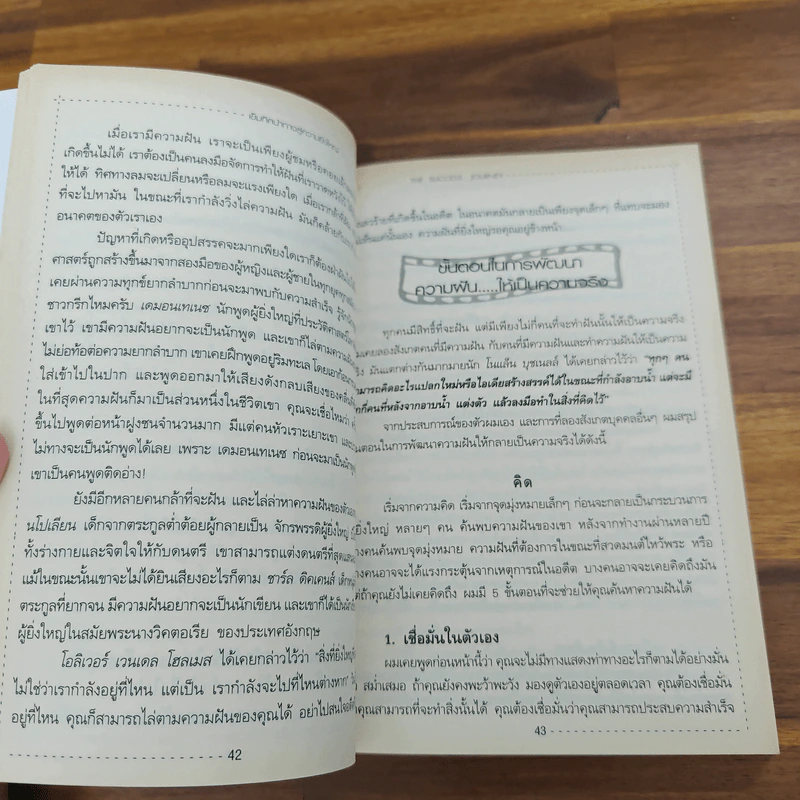 เข็มทิศนำทางสู่ความสำเร็จ
เมื่อเรามีความฝัน เราจะเป็นเพียงผู้ชมหรือคอย
เกิดขึ้นไม่ได้ เราต้องเป็นคนลงมือจัดการทำให้ฝันที่เรา
ให้ได้ ทิศทางลมจะเปลี่ยนหรือลมจะแรงเพียงใด เมื่อเรา
ที่จะไปหามัน ในขณะที่เรากำลังวิ่งไล่ความฝัน มันก็
อนาคตของตัวเราเอง
ปัญหาที่เกิดหรืออุปสรรคจะมากเพียงใดเราก็ต้อง
ศาสตร์ถูกสร้างขึ้นมาจากสองมือของผู้หญิงและผู้ชายในทุก
เคยผ่านความทุกข์ยากลำบากก่อนจะมาพบกับความสำเร็จ
ชาวกรีกไหมครับ เดมอนเทเนซ นักพูดผู้ยิ่งใหญ่ที่ประวัติศาสตร์
เขาไว้ เขามีความฝันอยากจะเป็นนักพูด และเขาก็ไล่ตามความ
ไม่ย่อท้อต่อความยากลำบาก เขาเคยฝึกพูดอยู่ริมทะเล โดยเอา
ใส่เข้าไปในปาก และพูดออกมาให้เสียงดังกลบเสียงของคลื่น
ในที่สุดความฝันก็มาเป็นส่วนหนึ่งในชีวิตเขา คุณจะเชื่อไหมว่า
ขึ้นไปพูดต่อหน้าฝูงชนจำนวนมาก มีแต่คนหัวเราะเยาะเขา
ไม่ทางจะเป็นนักพูดได้เลย เพราะ เดมอนเทเนซ ก่อนจะมาเป็น
เขาเป็นคนพูดติดอ่าง!
ยังมีอีกหลายคนกล้าที่จะฝัน และไล่ล่าหาความฝันของตัว
นโปเลียน เด็กจากตระกูลต่ำต้อยผู้กลายเป็น จักรพรรดิผู้ยิ่งใหญ่
ทั้งร่างกายและจิตใจให้กับดนตรี เขาสามารถแต่งดนตรีที่สุด
แม้ในขณะนั้นเขาจะไม่ได้ยินเสียงอะไรก็ตาม ชาร์ล ดิคเคนส์ เด็ก
ตระกูลที่ยากจน มีความฝันอยากจะเป็นนักเขียน และเขาก็ได้เป็น
ผู้ยิ่งใหญ่ในสมัยพระนางวิคตอเรีย ของประเทศอังกฤษ
โอลิเวอร์ เวนเดล โฮลเมส ได้เคยกล่าวไว้ว่า "สิ่งที่ยิ่งใหญ่
ไม่ใช่ว่าเรากำลังอยู่ที่ไหน แต่เป็น เรากำลังจะไปที่ไหนต่างหาก"
อยู่ที่ไหน คุณก็สามารถไล่ตามความฝันของคุณได้ อย่าไปสนใจ
42
THE SUCCESS JOURNEY
เลวร้ายที่เกิดขึ้นในอดีต ในอนาคตมันกลายเป็นเพียงจุดเล็กๆ ที่แทบจะมอง
เห็นเท่านั้นเอง ความฝันที่ยิ่งใหญ่รอคุณอยู่ข้างหน้า
ขั้นตอนในการพัฒนา
ความฝัน.....ให้เป็นความจริง
ทุกคนมีสิทธิ์ที่จะฝัน แต่มีเพียงไม่กี่คนที่จะทำฝันนั้นให้เป็นความจริง
ผมเคยลองสังเกตคนที่มีความฝัน กับคนที่มีความฝันและทำความฝันให้เป็นความ
จริง มันแตกต่างกันมากมายนัก โนแล็น บุชเนลล์ ได้เคยกล่าวไว้ว่า "ทุกๆ คน
สามารถคิดอะไรแปลกใหม่หรือไอเดียสร้างสรรค์ได้ในขณะที่กำลังอาบน้ำ แต่จะมี
กี่คนที่หลังจากอาบน้ำ แต่งตัว แล้วลงมือทำในสิ่งที่คิดไว้"
จากประสบการณ์ของตัวผมเอง และการที่ลองสังเกตบุคคลอื่นๆ ผมสรุป
ขั้นตอนในการพัฒนาความฝันให้กลายเป็นความจริงได้ดังนี้
คิด
เริ่มจากความคิด เริ่มจากจุดมุ่งหมายเล็กๆ ก่อนจะกลายเป็นกระบวนการ
ยิ่งใหญ่ หลายๆ คน ค้นพบความฝันของเขา หลังจากทำงานผ่านหลายปี
บางคนค้นพบจุดมุ่งหมาย ความฝันที่ต้องการในขณะที่สวดมนต์ไหว้พระ หรือ
บางคนอาจจะได้แรงกระตุ้นจากเหตุการณ์ในอดีต บางคนอาจจะเคยคิดถึงมัน
แต่ถ้าคุณยังไม่เคยคิดถึง ผมมี 5 ขั้นตอนที่จะช่วยให้คุณค้นหาความฝันได้
1. เชื่อมั่นในตัวเอง
ผมเคยพูดก่อนหน้านี้ว่า คุณจะไม่มีทางแสดงท่าทางอะไรก็ตามได้อย่างมั่น
สม่ำเสมอ ถ้าคุณยังคงพะว้าพะวัง มองดูตัวเองอยู่ตลอดเวลา คุณต้องเชื่อมั่น
คุณสามารถที่จะทำสิ่งนั้นได้ คุณต้องเชื่อมั่นว่าคุณสามารถประสบความสำเร็จ
43